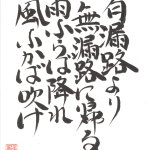 自漏路より
無漏路に帰る
雨ふらば降れ
風ふかば吹け